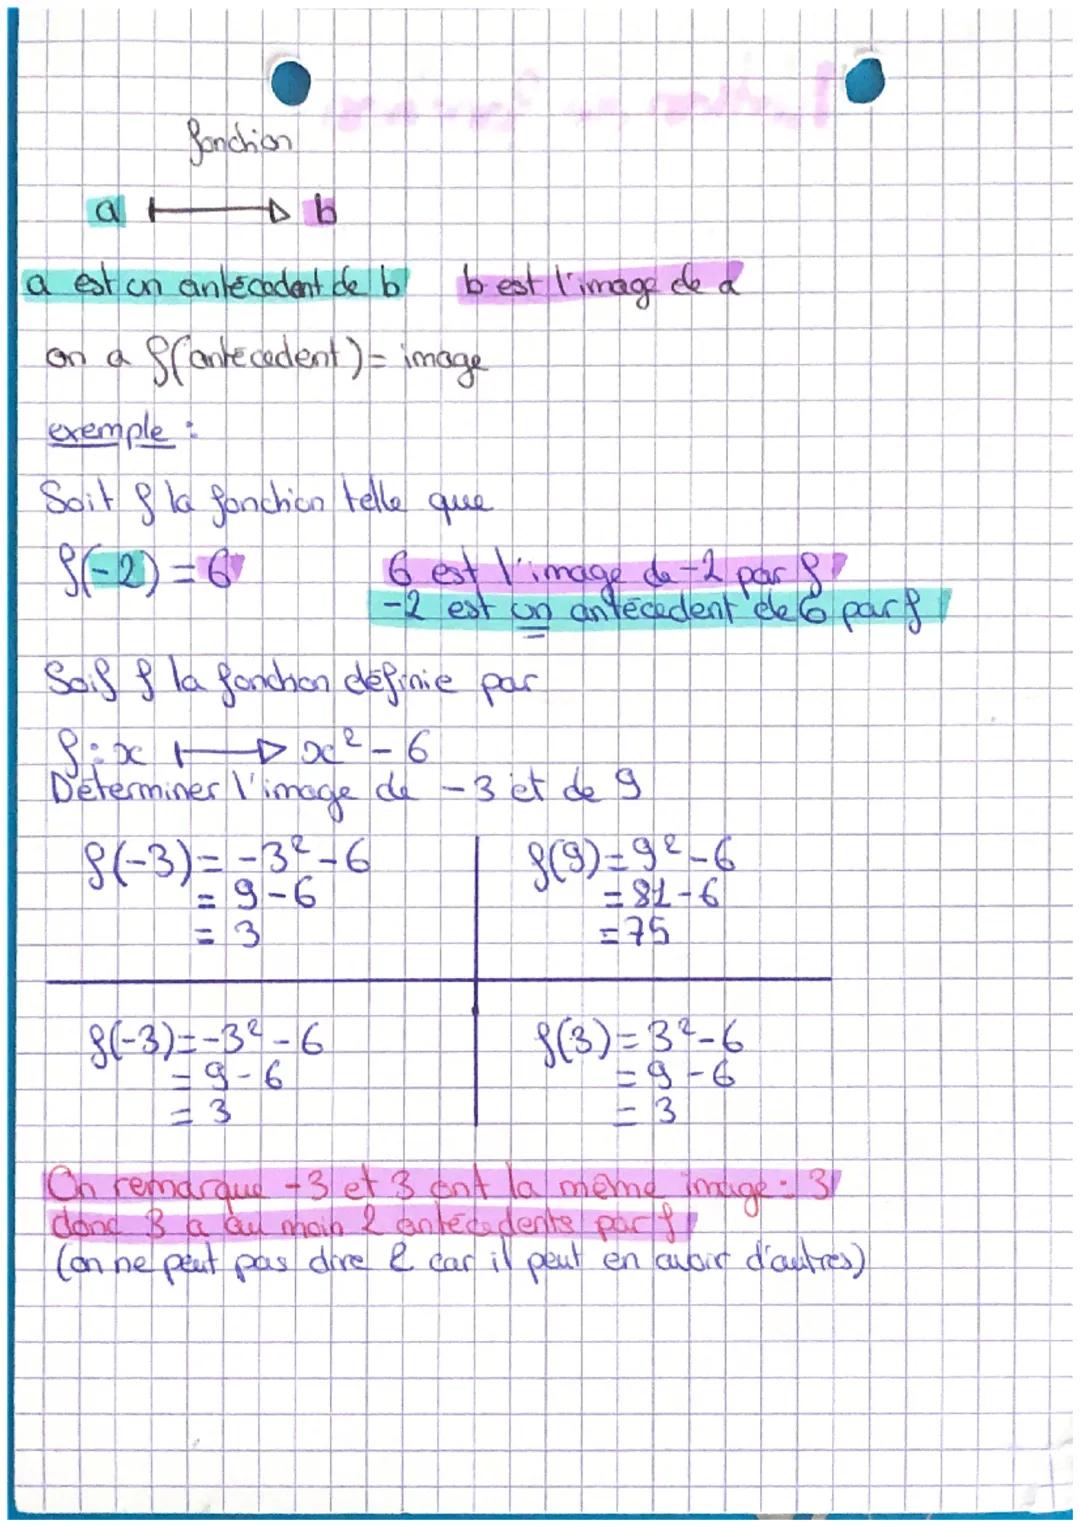 fonction
a ⟼ b
a est un antécédent de b b est l'image de a
on a f(antécedent) = image
exemple :
Soit f la fonction telle que
f(-2) = 6 6 est l'image de -2 par f
-2 est un antécédent de 6 par f
Soif f la fonction définie par
f : x ⟼ x² - 6
Déterminer l'image de -3 et de 9
f(-3) = -3² - 6
= 9 - 6
= 3
f(9) = 9² - 6
= 81 - 6
= 75
f(-3) = -3² - 6
= 9 - 6
= 3
f(3) = 3² - 6
= 9 - 6
= 3
On remarque -3 et 3 ont la même image : 3
donc 3 a au moin 2 antécedents par f
(on ne peut pas dire 2 car il peut en avoir d'autres)